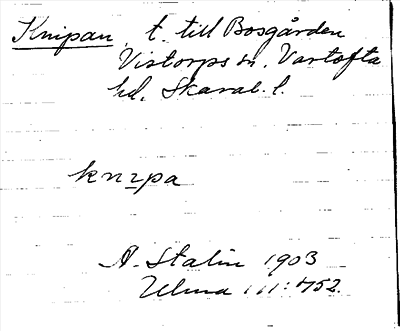 Knipan, t. till Bosgården
Vistorps sn. Vartofta
hd. Skarab. l.
knɪpa
A. Stalin 1903
Ulma 111:452.